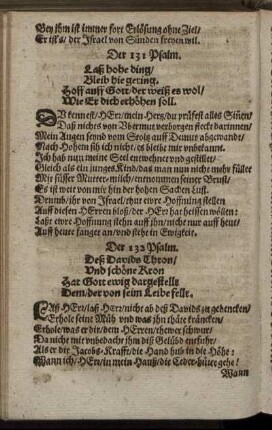 Bey ihm ist immer fort Erlösung ohne Ziel/
Er ists/ der Israel von Sünden freyen wil.
Der 131 Psalm.
Laß hohe ding/
Bleib hie gering.
Hoff auff Gott/ der weiß es wol/
Wie Er dich erhöhen soll.
DU kennest/ HErr/ mein Hertz/ du prüfest alles Sinnen/
Daß nichts von Ubermut verborgen steckt darinnen/
Mein Augen seynd vom Stoltz auff Demut abgewandt/
Nach Hohem sih ich nicht/ es bleibt mir unbekannt.
Ich hab nun meine Seel entwehnet und gestillet/
Gleich als ein junges Kind/ das man nun nicht mehr füllet
Mit süsser Mutter-milch/ entnommen seiner Brust/
Es ist weit von mir hin der hohen Sachen Lust.
Drumb/ ihr von Israel/ thut ewre Hoffnung stellen
Auff diesen HErren bloß/ der HErr hat heissen wöllen:
Laßt ewre Hoffnung stehn auff ihn/ nicht nur auff heut/
Auff heute fanget an/ und steht in Ewigkeit.
Der 132 Psalm.
Deß Davids Thron/
Und schöne Kron
Hat Gott ewig dargestellt
Dem/ der von seim Leibe fellt.
LAß/ HErr/ laß HErr/ nicht ab deß Davids zu gedencken/
Erhole seine Müh und was ihn thäte kräncken/
Erhole/ was er dir/ dem HErren/ thewer schwur/
Da nicht mir unbedacht ihm diß Gelübd entfuhr/
Als er die Jacobs-Krafft/ die Hand hub in die Höhe:
Wann ich/ HErr/ in mein Hauß/ die Ceder-hütte/ gehe!
Wann